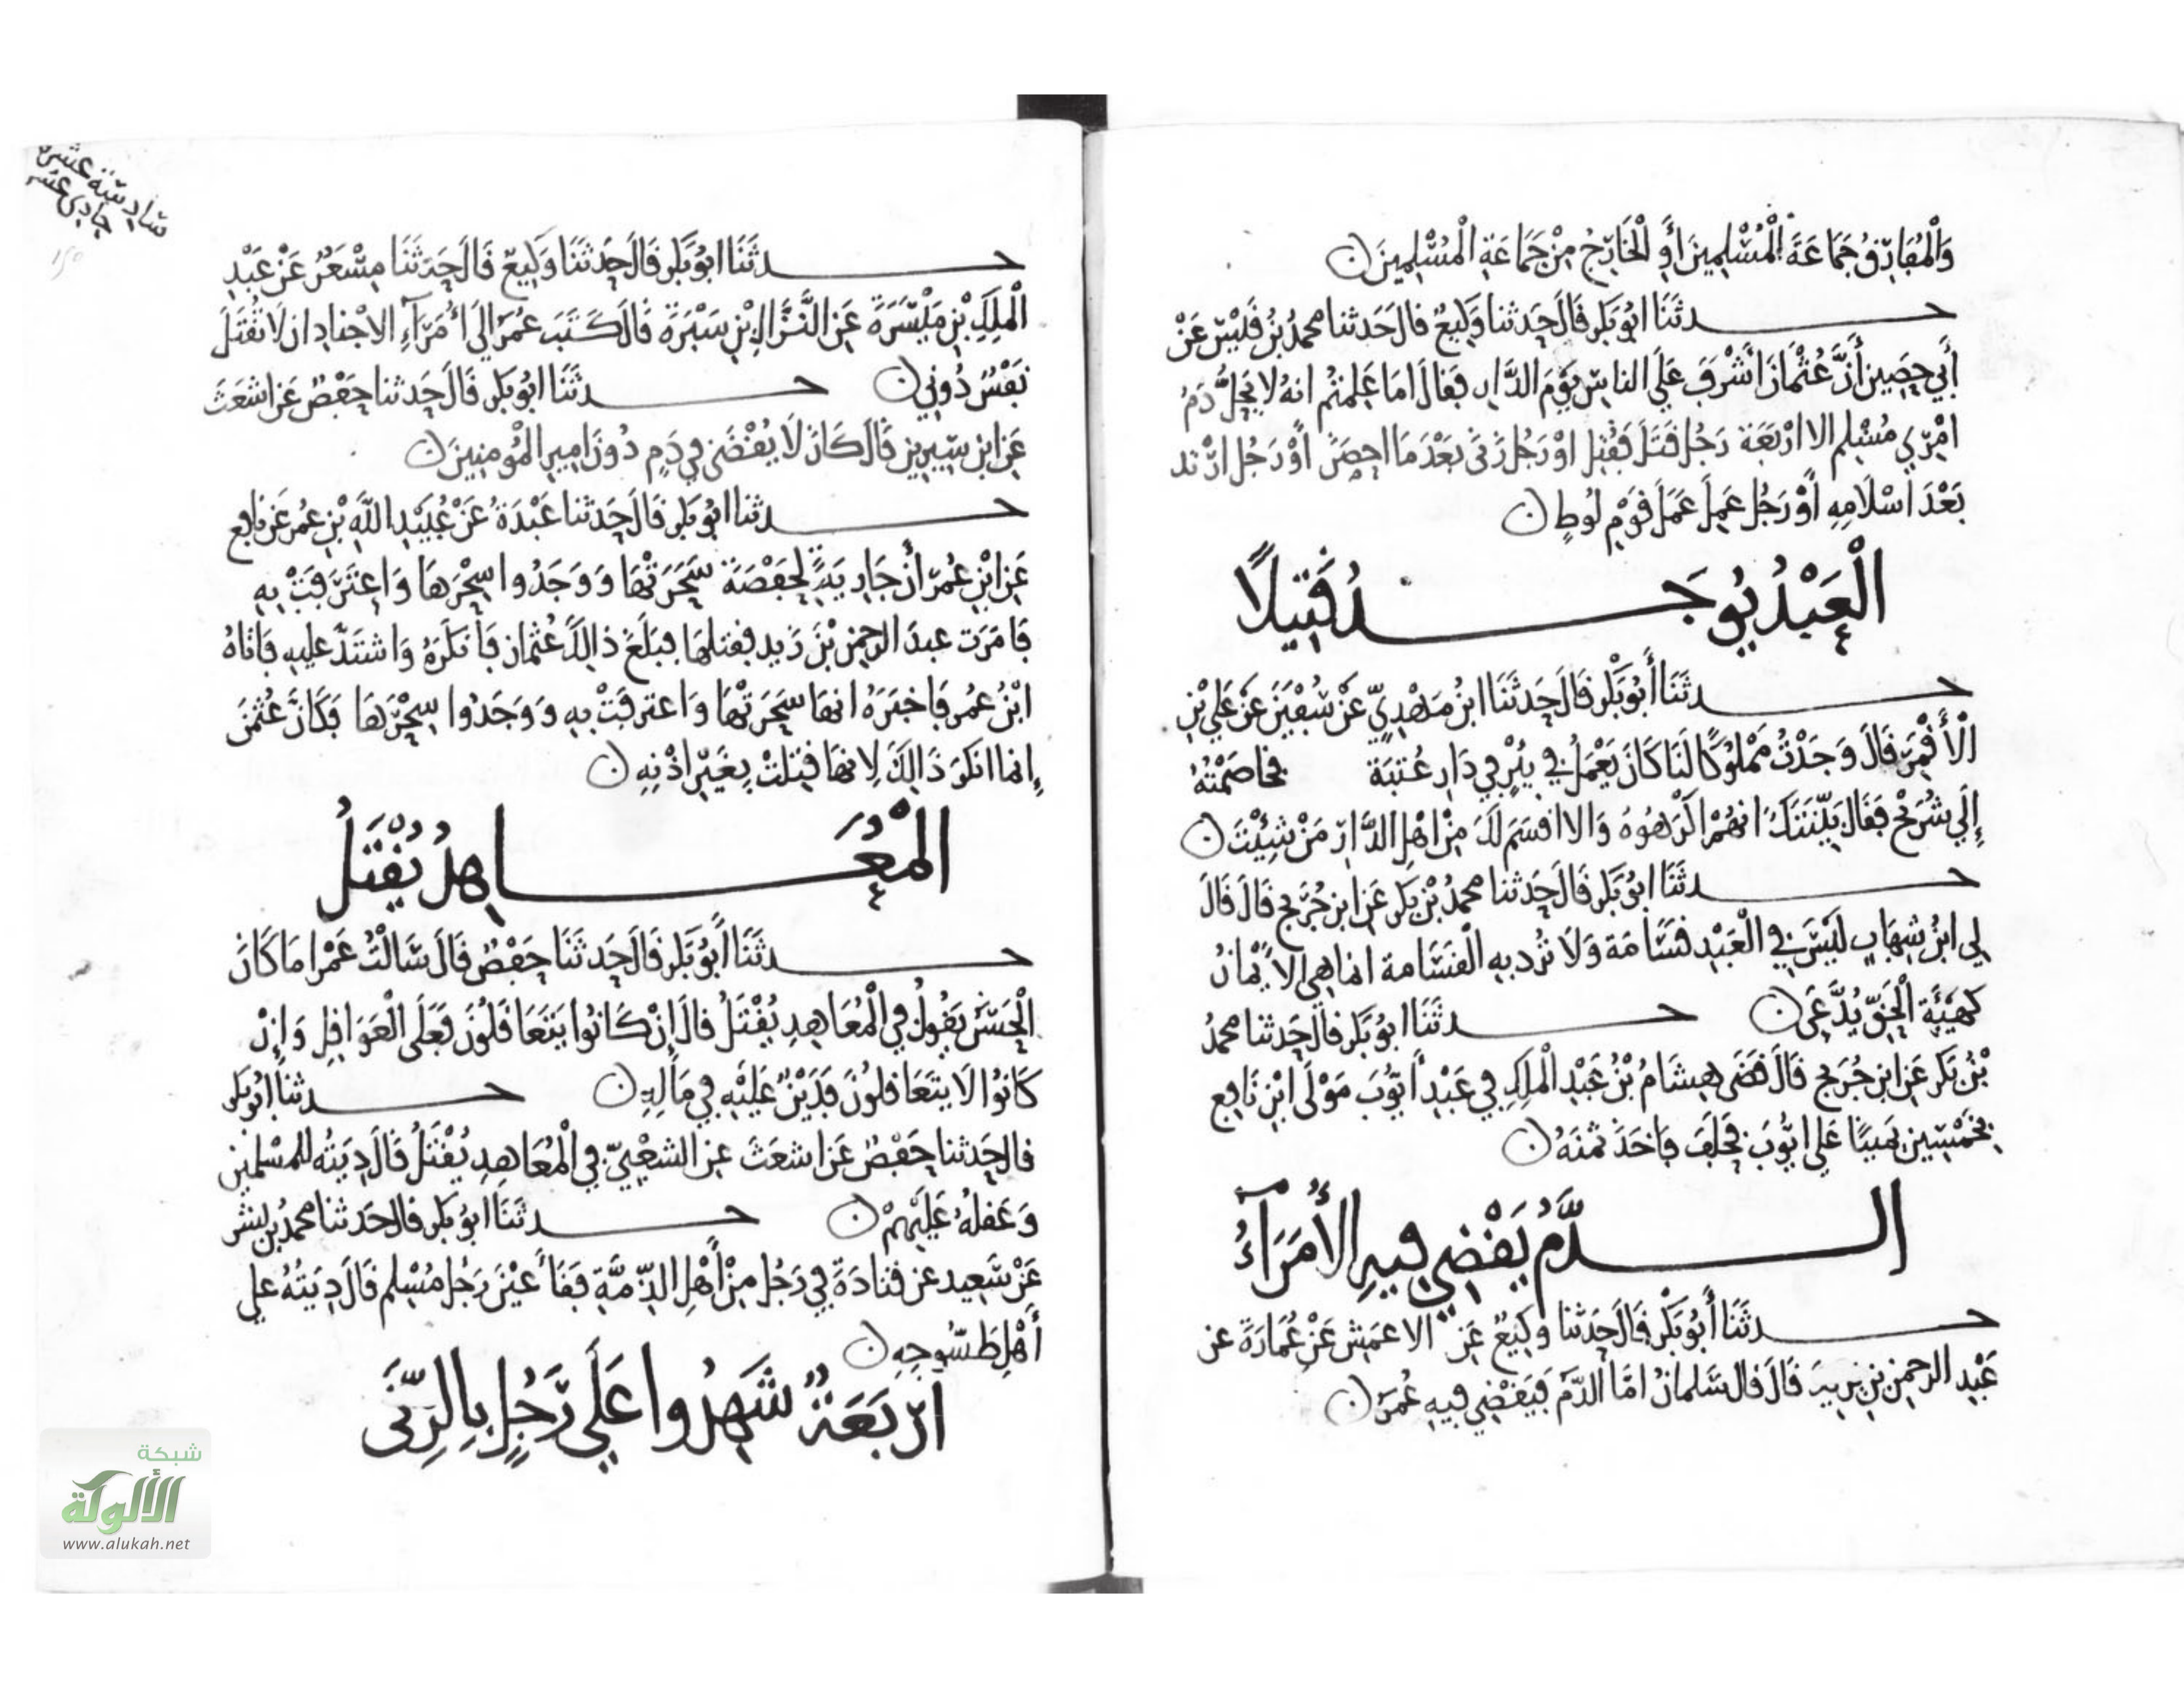 وَالْمُفَارِقُ جَمَاعَةَ الْمُسْلِمِينَ أَوِ الْخَارِجُ مِنْ جَمَاعَةِ الْمُسْلِمِينَ
حدثَنَا ابُو بَكر قَالَ حَدثنا وَكِيعٌ قال حَدثنا محمدُ بنُ قَيْسٍ عَنْ
أَبِي حَصِينٍ أَنَّ عُثْمَانَ أَشْرَفَ عَلَى الناسِ يَوْمَ الدَّارِ فَقَالَ امَا عَلِمْتُم انهُ لا يَحِلُّ دَمُ
امْرِيٍ مُسْلِم الا ارْبَعَة رَجُل قَتَلَ فَقُتِل اوْ رَجُل زَنَى بَعْدَ مَا احصَنَ أَوْ رَجُل ارْتد
بَعْدَ اسْلَامِهِ أَوْ رَجُل عَمِلَ عَمَلَ قَوْمِ لُوطٍ
الْعَبْدُ يُوجَدُ قَتِيلاً
حدثَنَا أَبُو بَكْرٍ قَالَ حَدثَنَا ابنُ مَهْدِيٍّ عَنْ سُفْيَنَ عَنْ عَلِي بْنِ
الْأَقْمَرِ قَالَ وَجَدْتُ مَمْلُوكًا لَنَا كَانَ يَعْمَلُ فِي بِئْرٍ فِي دَارِ عُتبَةَ فخاصَمْتُهُ
إِلَى شُرَيْحٍ فَقَالَ بَيِّنَتَكَ انهُمْ اكْرَهُوهُ وَالا اقسَمَ لَكَ مِنْ اهْلِ الدَّارِ مَنْ شِئْتَ
حدثَنَا ابُو بَكر قَالَ حَدثنا محمدُ بْنُ بَكر عَنِ ابنِ جُرَيْجٍ قَالَ قَالَ
لِي ابنُ شِهَابٍ لَيْسَ فِي الْعَبْدِ قَسَامَة وَلَا تُرد بهِ الْقَسَامة انما هي الأَيْمَانُ
كهَيْئَةِ الْحَقِّ يُدَّعَى حدثَنَا ابُو بَكر قال حَدثنا محمدُ
بْنُ بَكر عَنِ ابنِ جُرَيج قَالَ قَضَى هِشَامُ بْنُ عَبْدِ الْمَلِكِ فِي عَبْدِ أَيُّوبَ مَوْلَى ابْنِ نَافِع
بِخَمْسِين يَمِينًا عَلَى ايُّوبَ فَحَلَفَ فَاخَذَ ثمنَهُ
الدَّمُ يَقْضِي فِيهِ الأُمَرَآءُ
حدثَنَا أَبُو بَكْر قَالَ حَدثنا وَكِيعٌ عَنِ الاعمَشِ عَنْ عُمَارَةَ عن
عَبْدِ الرحمن بن يزيد قَالَ قال سَلمانُ امَّا الدَّمُ فَيَقْضِي فِيهِ عُمَرُ
سَادسَة عَشرة
حَادى عشر
١٥٠
حدثَنَا ابُو بَكر قَالَ حَدثَنَا وَكِيعٌ قَالَ حَدثَنَا مِسْعَرٌ عَنْ عَبْدِ
الْمَلِكِ بْنِ مَيْسَرَةَ عَنِ النَّزَّالِ بْنِ سَبْرَةَ قَالَ كَتَبَ عُمَرُ إِلَى أُمَرَآءِ الاجْنادِ ان لَا تُقْتَلَ
نَفْسٌ دُونِي حدثَنَا ابُو بَكر قَالَ حَدثنا حَفْصٌ عَن اشعَثَ
عَنِ ابنِ سِيرِين قَالَ كَانَ لَا يُقْضَى فِي دَمٍ دُونَ امِيرِ الْمُومِنِينَ
حدثنا ابُو بَكر قَالَ حَدثنا عَبْدَةُ عَنْ عُبَيْدِ اللَّهِ بْنِ عُمر عَن نافِع
عَنِ ابْنِ عُمَرَ أَن جَارِيَةً لِحَفْصَةَ سَحَرَتْهَا وَوَجَدُوا سِحْرَهَا وَاعْتَرَفَتْ بِهِ
فَامَرَت عبدَ الرحمن بْنَ زَيد فقتلهَا فبَلَغَ ذَالِكَ عُثمان فَأَنكَرَهُ وَاشتَدَّ عَليهِ فَاتاهُ
ابْنُ عُمر فَاخبَرَهُ انهَا سَحَرَتْهَا وَاعترفَتْ بِهِ وَوَجَدُوا سِحْرَهَا فَكَانَ عُثمنَ
إِنما انكَرَ ذَالِكَ لِانهَا قُتِلَتْ بِغَيْرِ اذْنِهِ
الْمُعَاهدُ يُقتَلُ
حدثَنَا أَبُو بَكر قَالَ حَدثَنَا حَفْصٌ قَالَ سَالتُ عَمْرا مَا كَانَ
الْحَسَنُ يَقُولُ فِي الْمُعَاهِدِ يُقْتَلُ قَالَ إِنْ كَانُوا يَتَعَاقَلُونَ فَعَلَى الْعَوَاقِلِ وَإِنْ
كَانُوا لَا يتَعَاقلُونَ فَدَيْنٌ عَلَيْهِ فِي مَالِهِ حدثنا أَبُو بَكر
قال حَدثنا حَفْصٌ عَن اشعَثَ عن الشعْبِيِّ فِي الْمُعَاهِدِ يُقْتَلُ قَالَ دِيَتُه للمُسْلمِين
وَعَقلُهُ عَلَيْهِمْ حدثَنَا ابُو بَكر قال حَدثنا محمدُ بن بشر
عَنْ سَعِيد عن قتادَةَ فِي رَجُل مِنْ أَهْلِ الذِّمَّةِ فَقَأَ عَيْنَ رَجُل مُسْلِم قَالَ دِيَتُهُ عَلى
أَهْلِ طَسُّوجِهِ
أَرْبَعَةٌ شَهِدُوا عَلَى رَجُلٍ بِالزِّنَى
شبكة
الألوكة
www.alukah.net